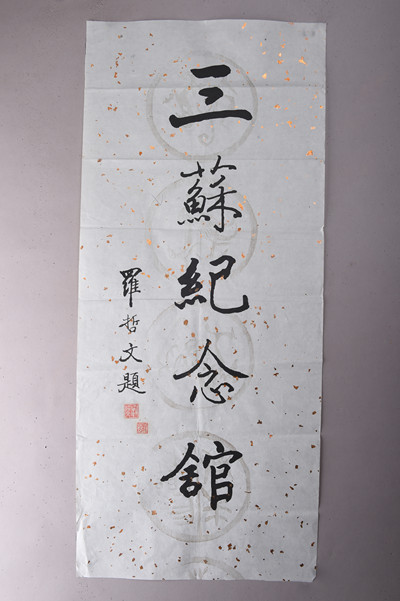 三蘇紀念舘
羅哲文題